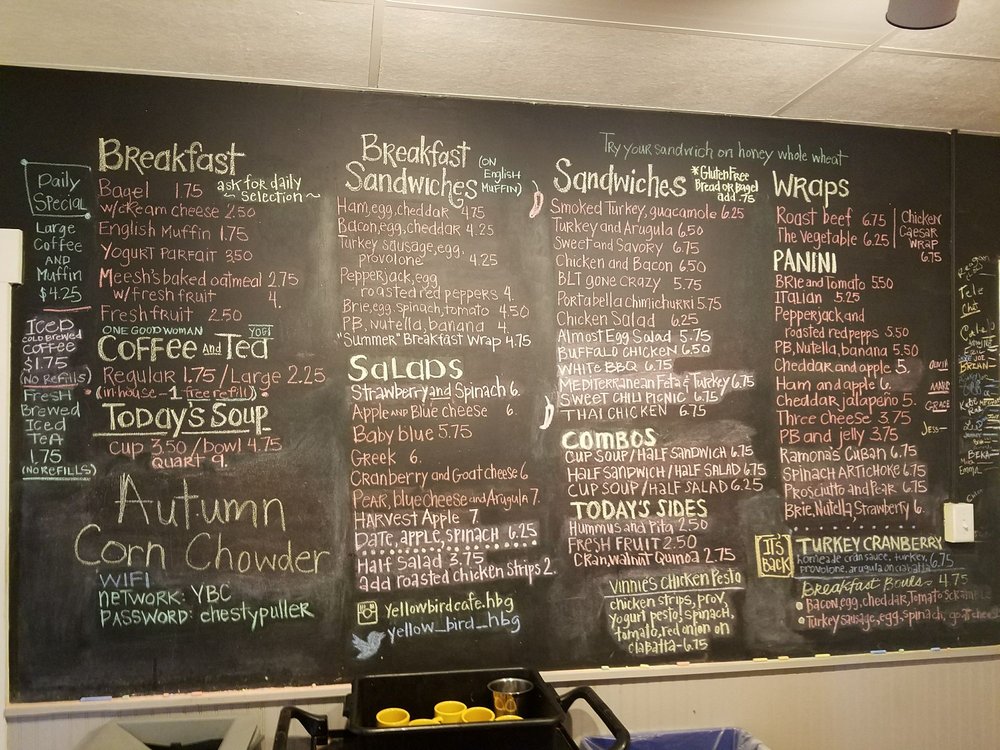 Daily
Special
Large
Coffee
AND
Muffin
$4.25
Iced
Cold Brewed
Coffee
$1.75
(No Refills)
Fresh
Brewed
Iced
Tea
1.75
(NO REFILLS)
Breakfast
Bagel 1.75 ask for daily
~ Selection ~
w/cream cheese 2.50
English Muffin 1.75
Yogurt Parfait 3.50
Meesh's baked oatmeal 2.75
w/fresh fruit 4.
Fresh fruit 2.50
ONE GOOD WOMAN
Coffee AND Tea
Regular 1.75 / Large 2.25
(in house - 1 free refill)
Today's Soup
cup 3.50 / bowl 4.75
QUART 9.
Autumn
Corn Chowder
WIFI
NETWORK: YBC
PASSWORD: chestypuller
Breakfast
Sandwiches
(ON
ENGLISH
MUFFIN)
Ham, egg, cheddar 4.75
Bacon, egg, cheddar 4.25
Turkey sausage, egg,
provolone 4.25
Pepperjack, egg
roasted red peppers 4.
Brie, egg, spinach, tomato 4.50
PB, Nutella, banana 4.
"Summer" Breakfast Wrap 4.75
SALADS
Strawberry and Spinach 6.
Apple AND Blue cheese 6.
Baby blue 5.75
Greek 6.
Cranberry and Goat cheese 6
Pear, blue cheese and Arugula 7.
Harvest Apple 7.
Date, apple, spinach 6.25
Half Salad 3.75
add roasted chicken strips 2.
yellowbirdcafe.hbg
yellow_bird_hbg
Try your sandwich on honey whole wheat
Sandwiches
*Gluten Free
Bread or Bagel
add .75
Smoked Turkey, guacamole 6.25
Turkey and Arugula 6.50
Sweet and Savory 6.75
Chicken and Bacon 6.50
BLT gone crazy 5.75
Portabella chimichurri 5.75
Chicken Salad 6.25
Almost Egg Salad 5.75
Buffalo Chicken 6.50
White BBQ 6.75
Mediterranean Feta & Turkey 6.75
Sweet Chili Picnic 6.75
Thai Chicken 6.75
COMBOS
CUP SOUP/HALF SANDWICH 6.75
HALF SANDWICH/HALF SALAD 6.75
CUP SOUP/HALF SALAD 6.25
TODAY'S SIDES
Hummus and Pita 2.50
FRESH FRUIT 2.50
CRAN, WALNUT QUINOA 2.75
Vinnie's Chicken Pesto
chicken strips, prov,
yogurt pesto, spinach,
tomato, red onion on
ciabatta - 6.75
WRAPS
Roast beef 6.75
The Vegetable 6.25
Chicken
Caesar
Wrap
6.75
PANINI
Brie and Tomato 5.50
Italian 5.25
Pepperjack and
roasted red pepps 5.50
PB, Nutella, banana 5.50
Cheddar and apple 5.
Ham and apple 6.
Cheddar jalapeño 5.
Three Cheese 3.75
PB and Jelly 3.75
Ramona's Cuban 6.75
Spinach Artichoke 6.75
Prosciutto and Pear 6.75
Brie, Nutella, Strawberry 6.
IT'S
BACK
TURKEY CRANBERRY
homemade cran sauce, turkey,
provolone, arugula on ciabatta 6.75
Breakfast Bowls - 4.75
Bacon, egg, cheddar, Tomato
Turkey sausage, egg, spinach, goat cheese
GRACE
Jess